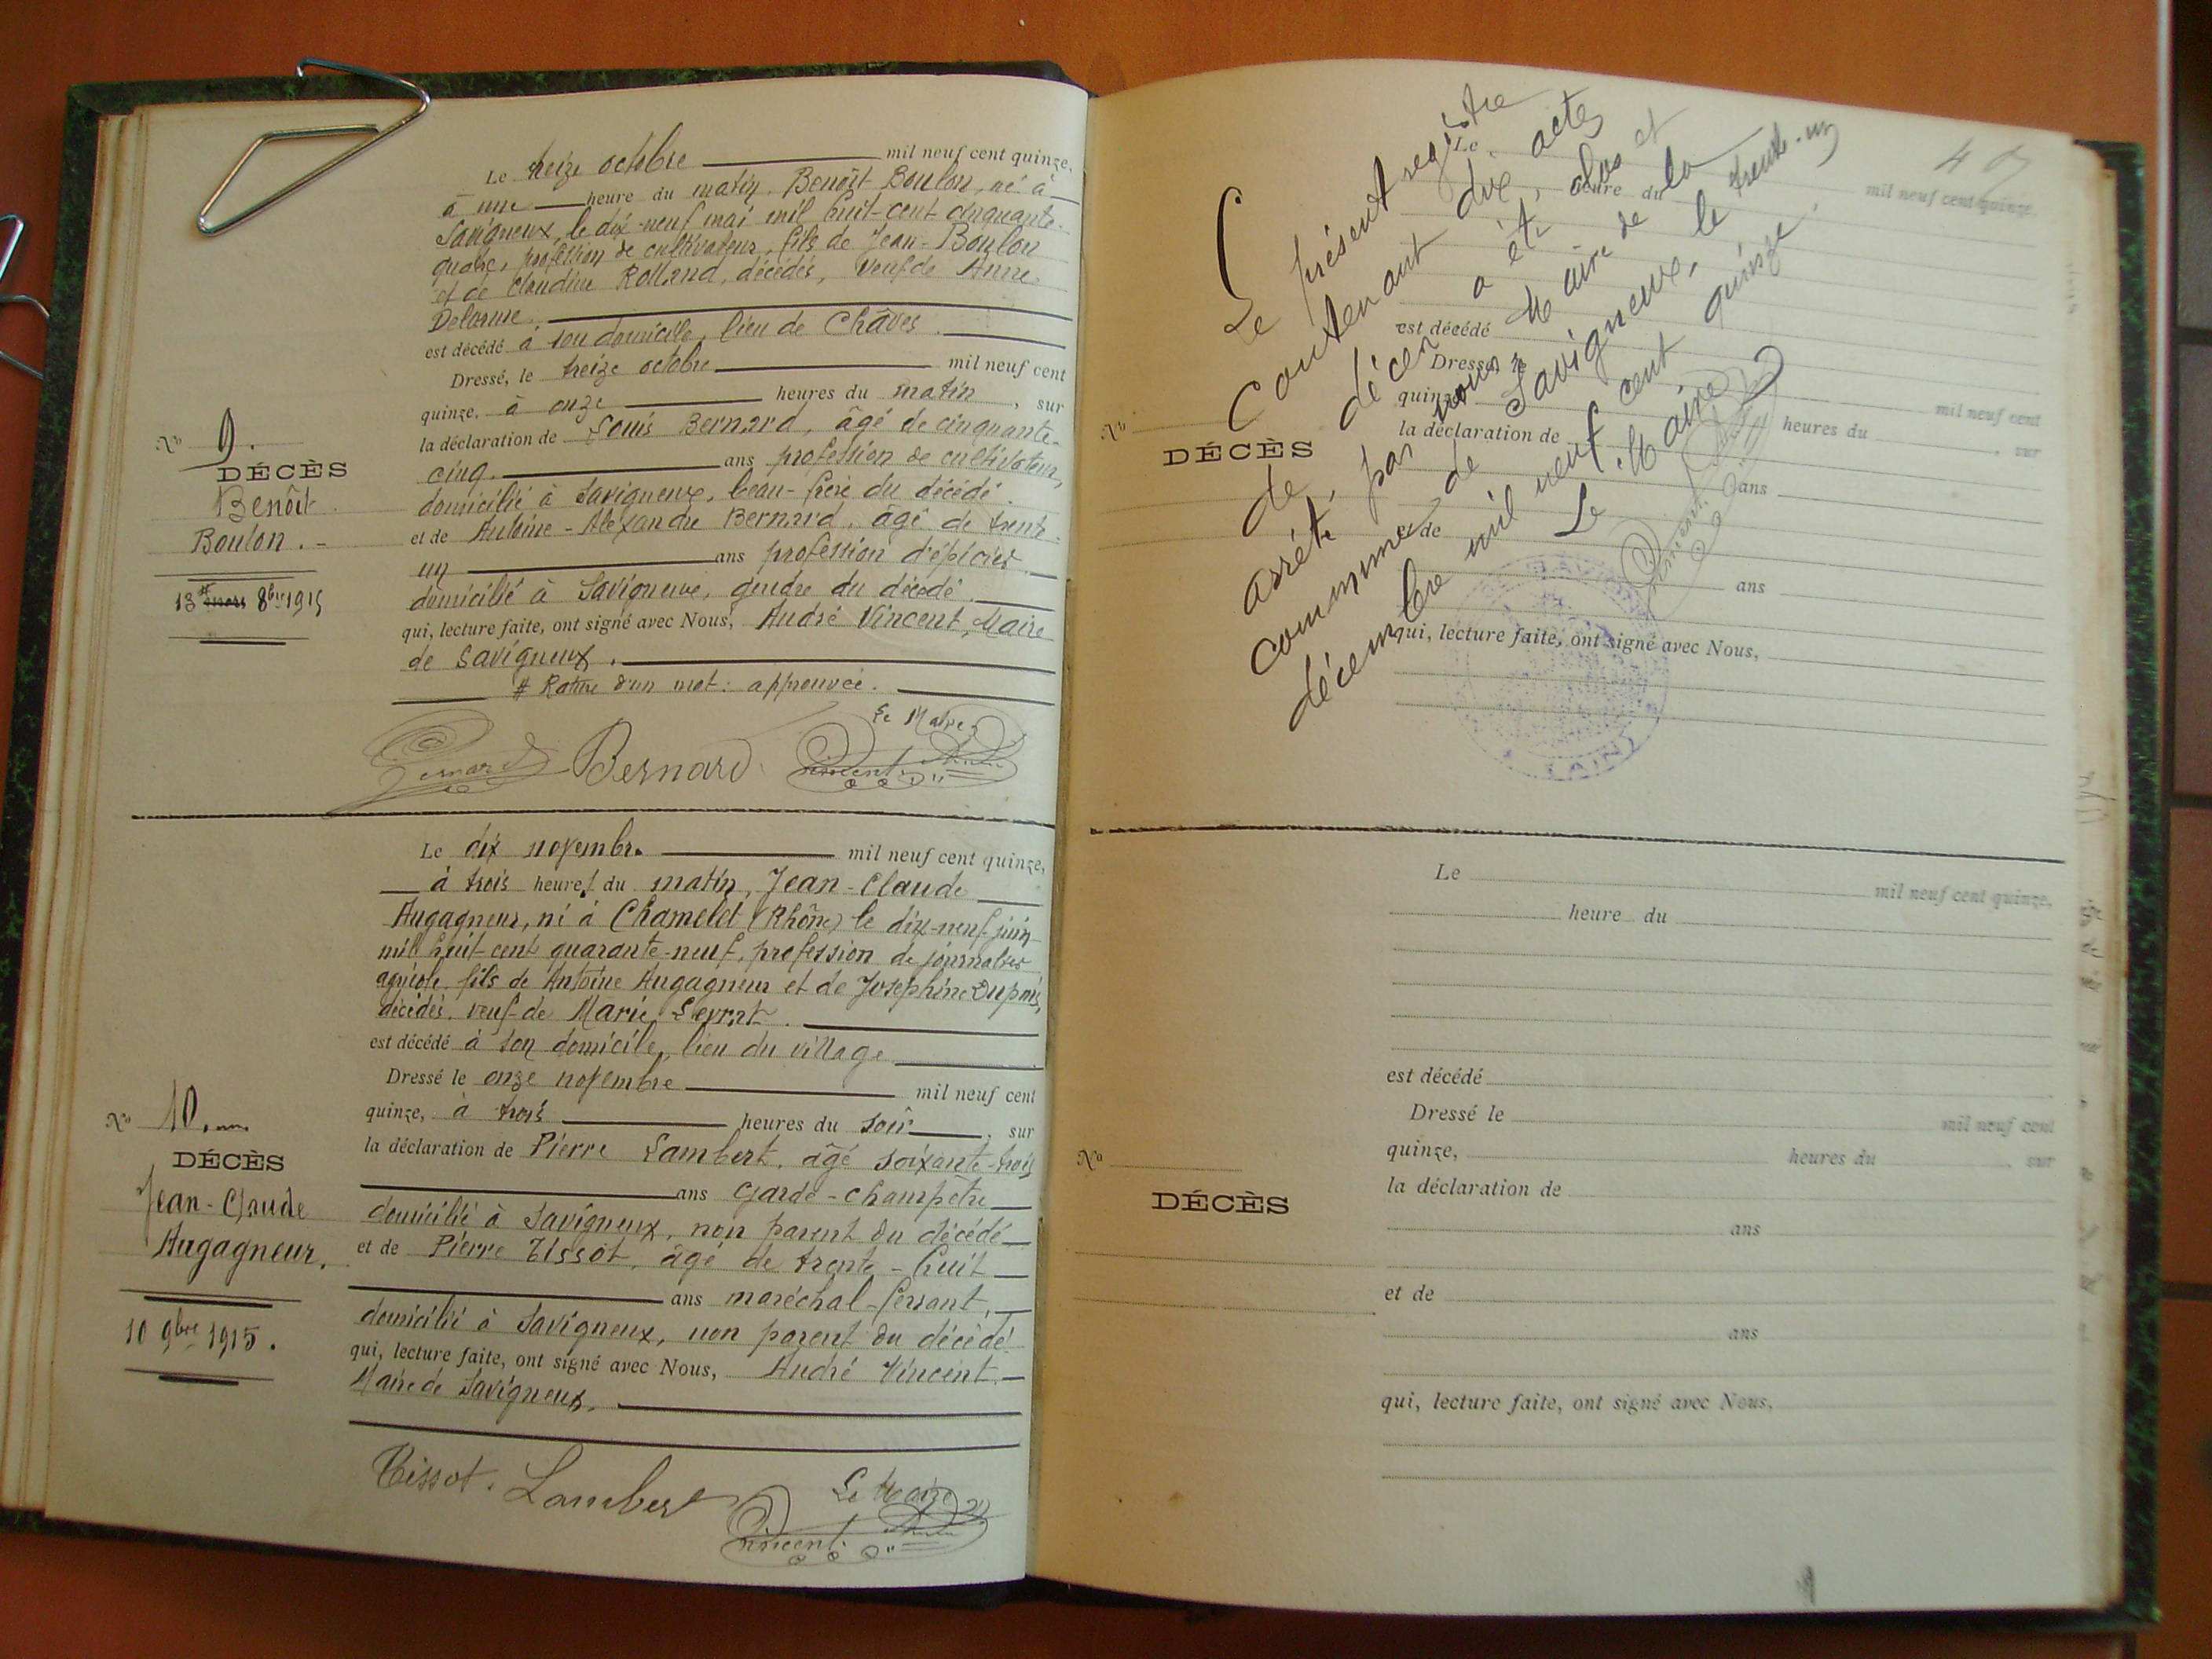 Le treize octobre mil neuf cent quinze,
à une heure du matin, Benoît Boulon, né à
Savigneux, le dix-neuf mai mil huit-cent cinquante-
quatre, profession de cultivateur, fils de Jean-Boulon
et de Claudine Rolland, décédés, veuf de Anne
Delorme.
est décédé à son domicile, lieu de Chàves.
Dressé, le treize octobre mil neuf cent
quinze, à onze heures du matin, sur
la déclaration de Louis Bernard, âgé de cinquante-
cinq. ans profession de cultivateur,
domicilié à Savigneux, beau-frère du décédé.
et de Antoine-Alexandre Bernard, âgé de trente-
un ans profession d'épicier
domicilié à Savigneux, gendre du décédé.
qui, lecture faite, ont signé avec Nous, André Vincent, Maire
de Savigneux.
# Rature d'un mot: approuvée.
Le Maire,
Bernard Bernard Vincent
No 9.
DÉCÈS
Benoît
Boulon.-
13 # mars 8bre 1915
Le dix novembre mil neuf cent quinze,
à trois heures du matin, Jean-Claude
Augagneur, né à Chamelet (Rhône) le dix-neuf juin
mil huit-cent quarante-neuf, profession de journalier
agricole, fils de Antoine Augagneur et de Josephine Dupuis,
décédés, veuf de Marie
est décédé à son domicile, lieu du village
Dressé le onze novembre mil neuf cent
quinze, à trois heures du soir, sur
la déclaration de Pierre Lambert, âgé soixante-trois
ans Garde-champêtre
domicilié à Savigneux, non parent du décédé
et de Pierre Tissot, âgé de trente-huit
ans maréchal-ferrant,
domicilié à Savigneux, non parent du décédé
qui, lecture faite, ont signé avec Nous, André Vincent
Maire de Savigneux.
Tissot. Lambert Le Maire
Vincent
No 10.
DÉCÈS
Jean-Claude
Augagneur.
10 9bre 1915.
Le présent registre
Contenant dix actes
de décès a été clos et
arrêté par nous Maire de la
commune de Savigneux, le trente-un
décembre mil neuf cent quinze.
Le Maire
Vincent
Le heure du mil neuf cent quinze,
est décédé
Dressé le mil neuf cent
quinze, heures du , sur
la déclaration de
ans
et de
ans
qui, lecture faite, ont signé avec Nous,
No
DÉCÈS
Le mil neuf cent quinze,
heure du
est décédé
Dressé le mil neuf cent
quinze, heures du , sur
la déclaration de
ans
et de
ans
qui, lecture faite, ont signé avec Nous,
No
DÉCÈS